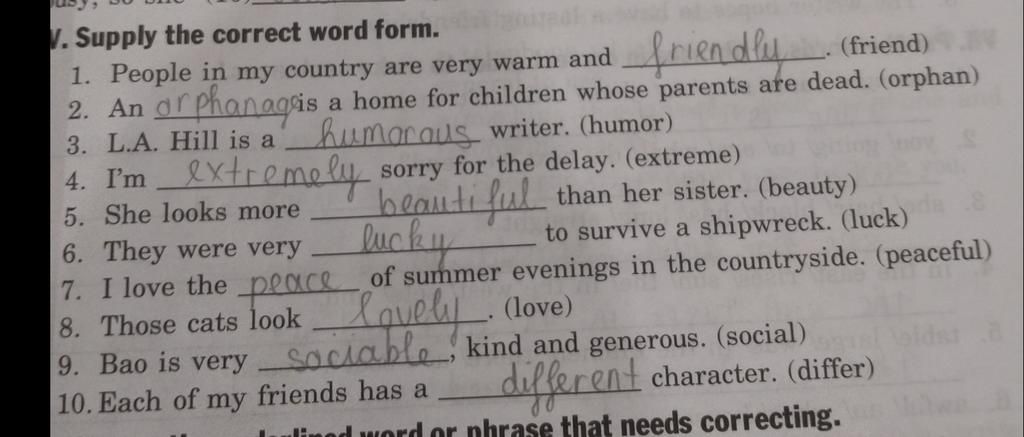 V. Supply the correct word form.
1. People in my country are very warm and friendly. (friend)
2. An orphanage is a home for children whose parents are dead. (orphan)
3. L.A. Hill is a humorous writer. (humor)
4. I'm extremely sorry for the delay. (extreme)
5. She looks more beautiful than her sister. (beauty)
6. They were very lucky to survive a shipwreck. (luck)
7. I love the peace of summer evenings in the countryside. (peaceful)
8. Those cats look lovely. (love)
9. Bao is very sociable, kind and generous. (social)
10. Each of my friends has a different character. (differ)
word or phrase that needs correcting.